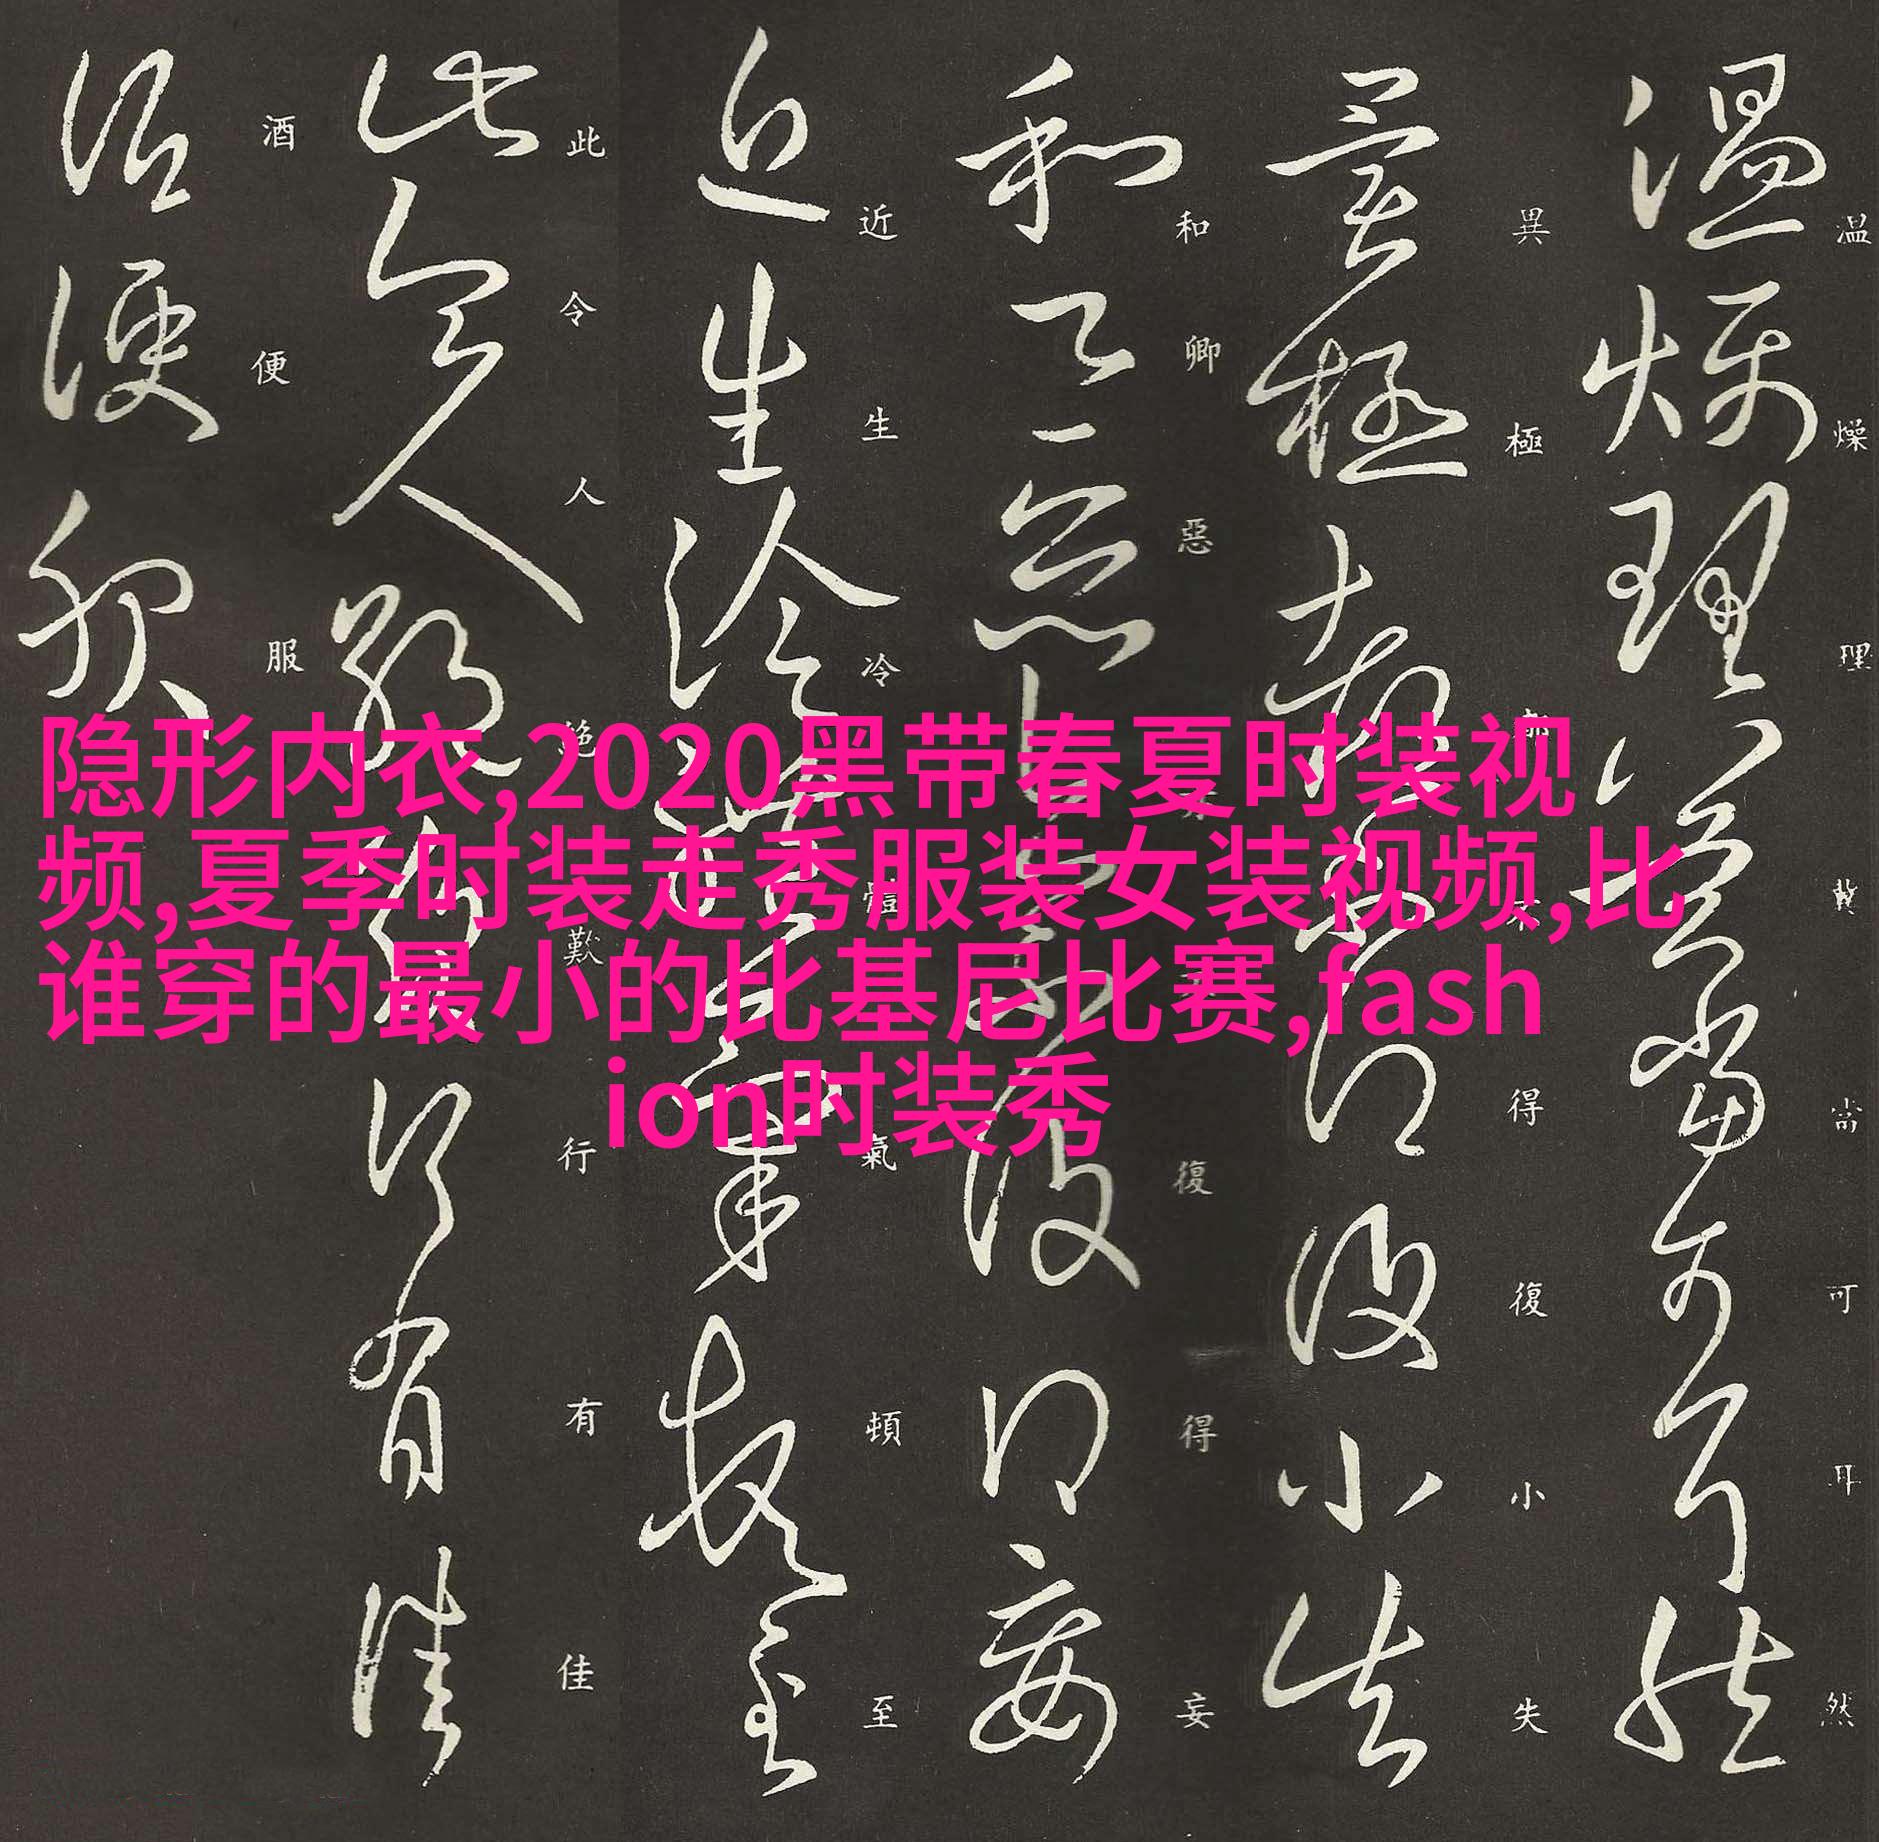 隐形内衣,2020黑带春夏时装视
频,夏季时装走秀服装女装视频,比
谁穿的最小的比基尼比赛,fash
ion时装秀
温燥理冀當可耳然
異極都不得復小失
和卿惡復得妄
近生冷體氣頓至
此令人絕歎行有佳
酒便服